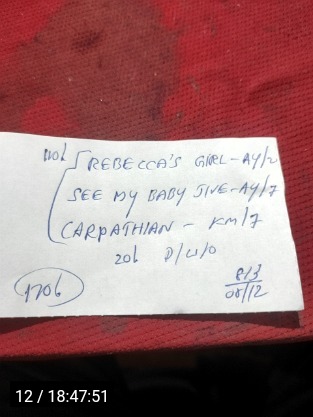 110L REBECCA'S GIRL - AY/2
SEE MY BABY JIVE - AY/7
CARPATHIAN - KM/7
20L P/U/O
1706 8/3
08/12
12 / 18:47:51